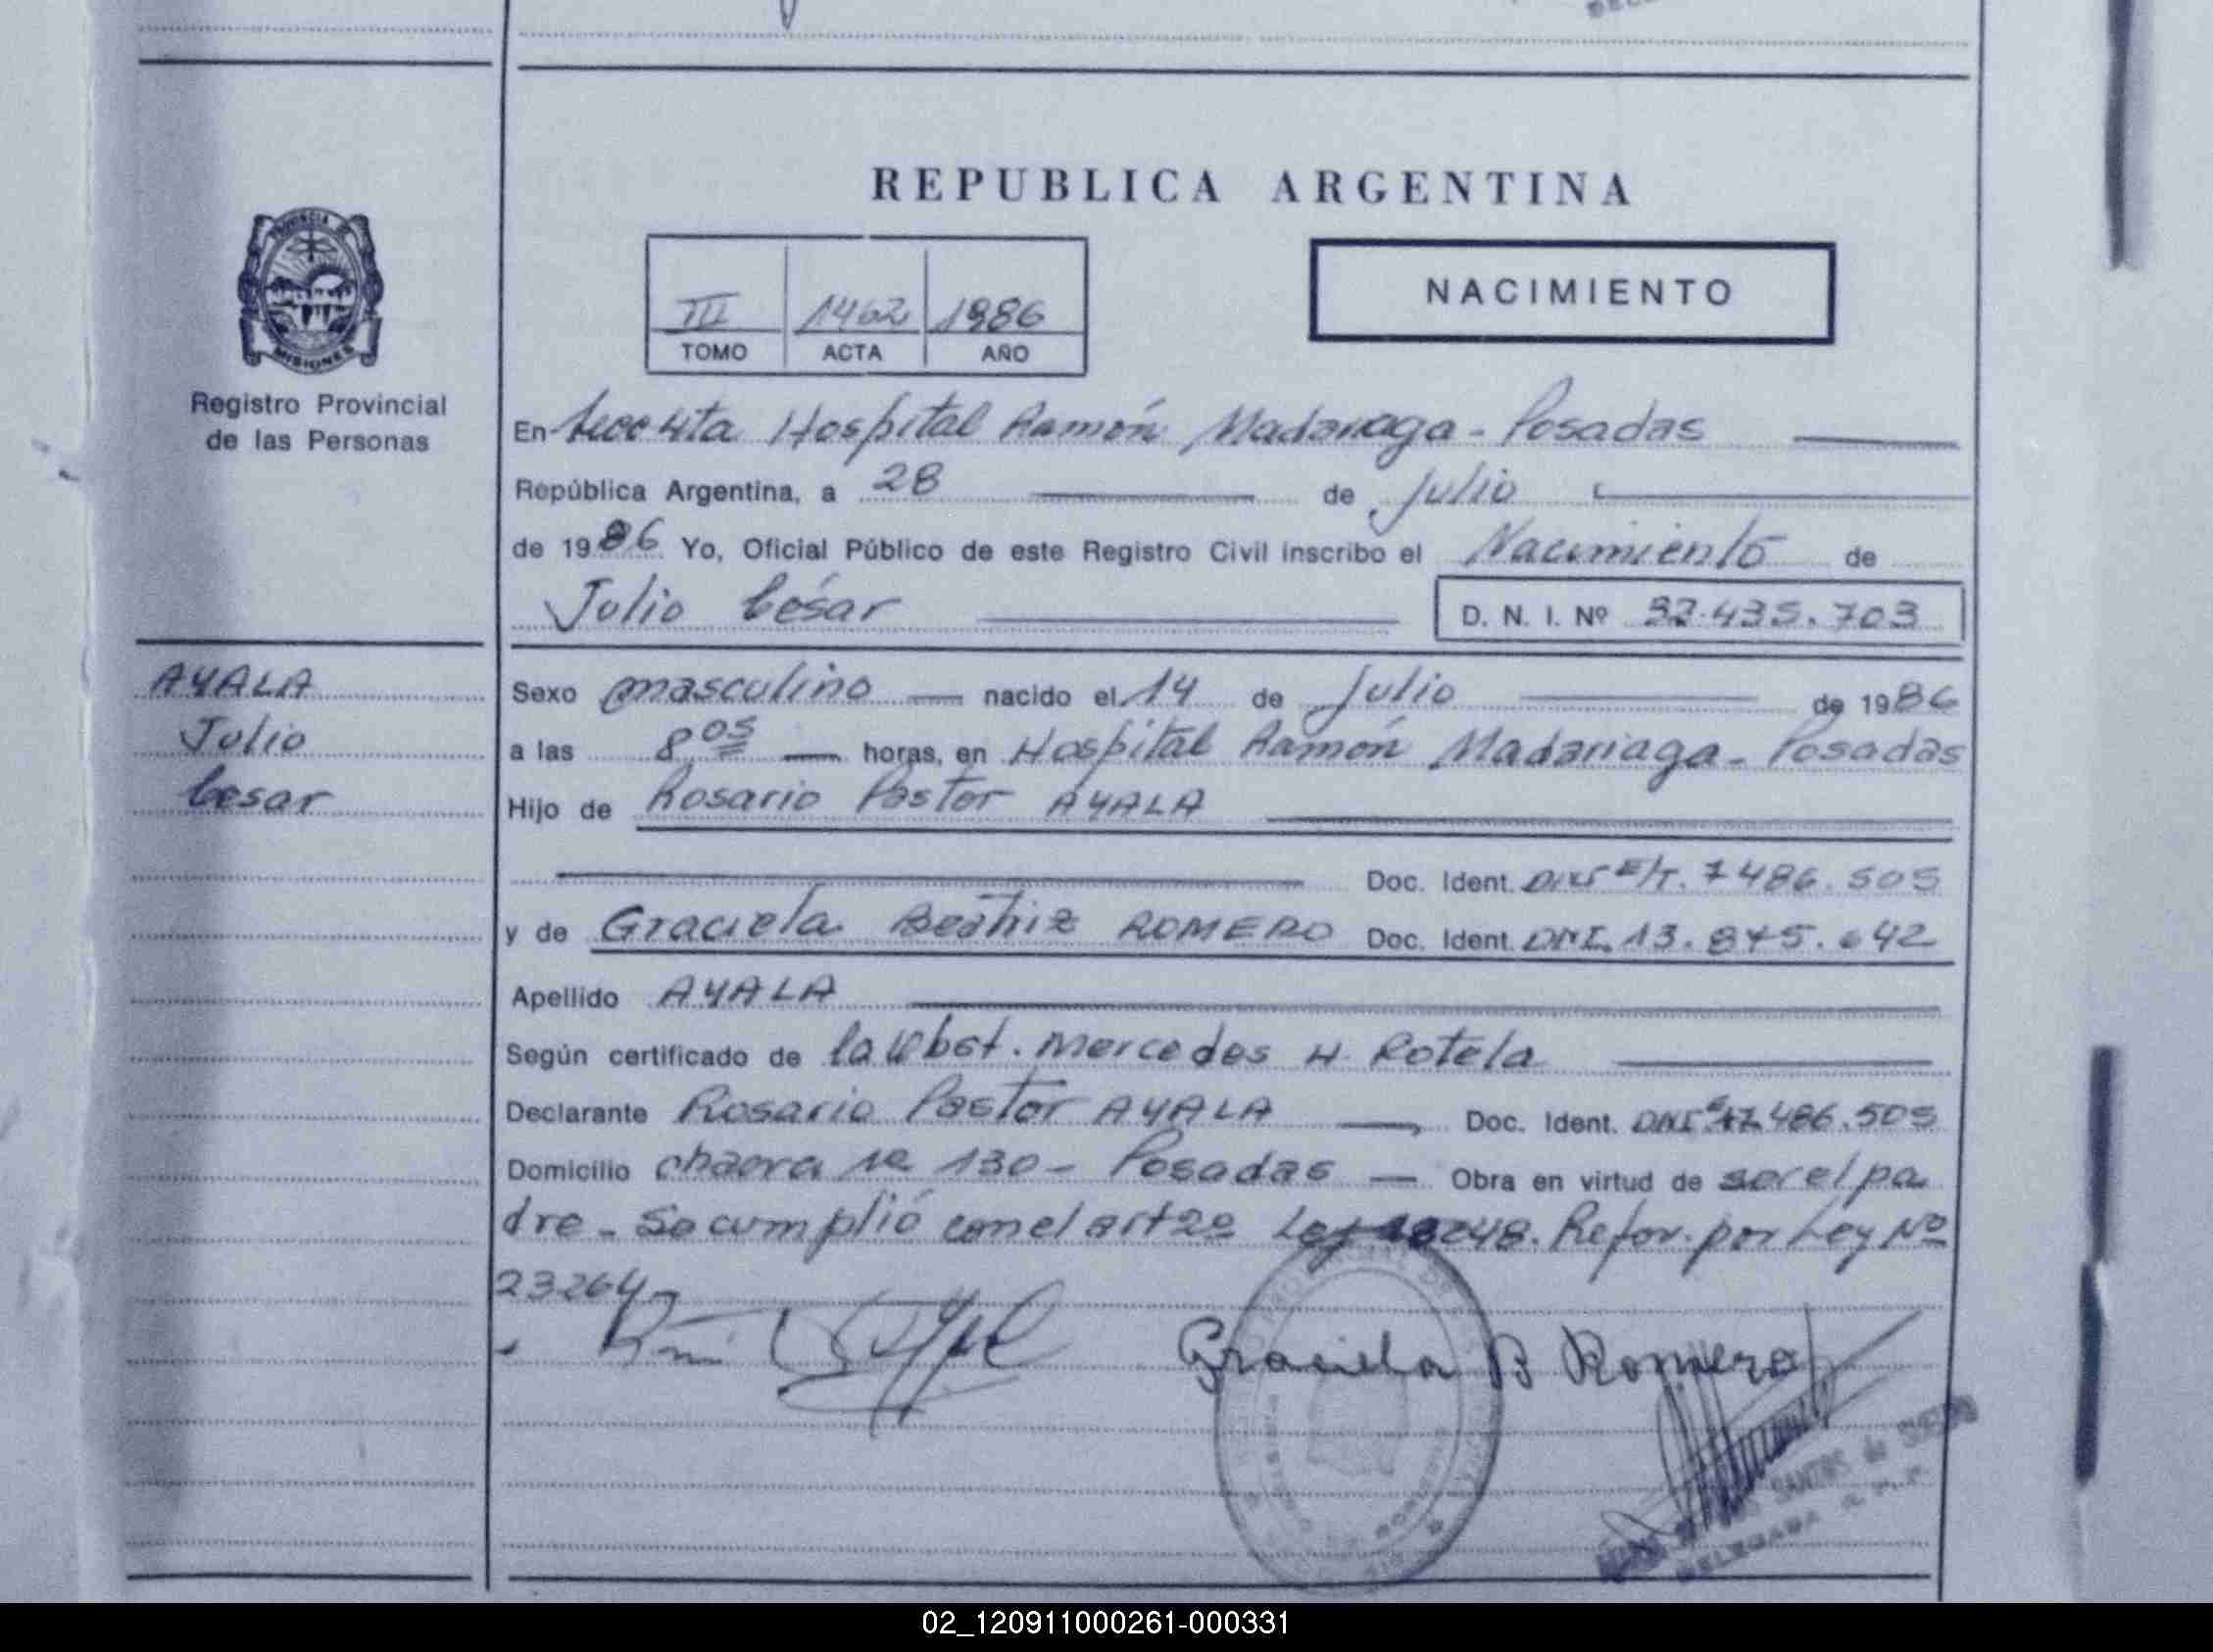 REPUBLICA ARGENTINA
PROVINCIA DE
MISIONES
Registro Provincial
de las Personas
III 1462 1986
TOMO ACTA AÑO
NACIMIENTO
En Secc 4ta Hospital Ramón Madariaga - Posadas
República Argentina, a 28 de Julio
de 1986 Yo, Oficial Público de este Registro Civil inscribo el Nacimiento de
Julio César
D. N. I. Nº 32.435.703
AYALA
Julio
Cesar
Sexo masculino nacido el 14 de Julio de 1986
a las 8 05 horas, en Hospital Ramón Madariaga - Posadas
Hijo de Rosario Pastor AYALA
Doc. Ident. 7486.505
y de Graciela Beatriz ROMERO Doc. Ident. DNI. 13.875.642
Apellido AYALA
Según certificado de la Obst. Mercedes H. Rotela
Declarante Rosario Pastor AYALA Doc. Ident. DNI 7.486.505
Domicilio chacra 130 - Posadas Obra en virtud de ser el pa
dre - Se cumplió con el art 2º Ley 18248. Refor. por Ley Nº
23264
Graciela B Romero
SANTOS de
DELEGADA
02_120911000261-000331